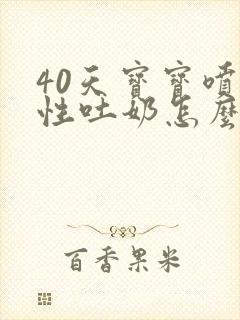 40天寶寶噴
性吐奶怎麼
百香果米